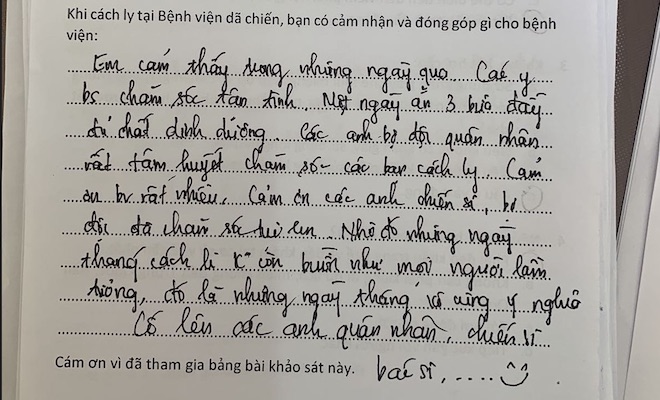 Khi cách ly tại Bệnh viện dã chiến, bạn có cảm nhận và đóng góp gì cho bệnh
viện:
Em cảm thấy trong những ngày qua Các y
bs chăm sóc tân tình. Một ngày ăn 3 buổ đầy
đủ chất dinh dưỡng. Các anh bộ đội quân nhân
rất tâm huyết chăm sóc các bạn cách ly. Cảm
ơn bv rất nhiều. Cảm ơn các anh chiến sĩ, bộ
đội đã chăm sóc tụi em. Nhờ đó những ngày
tháng cách li K° còn buồn như mọi người lầm
tưởng, đó là những ngày tháng vô cùng ý nghĩa
Cố lên các anh quân nhân, chiến sĩ
Cám ơn vì đã tham gia bảng bài khảo sát này. bác sĩ, ....